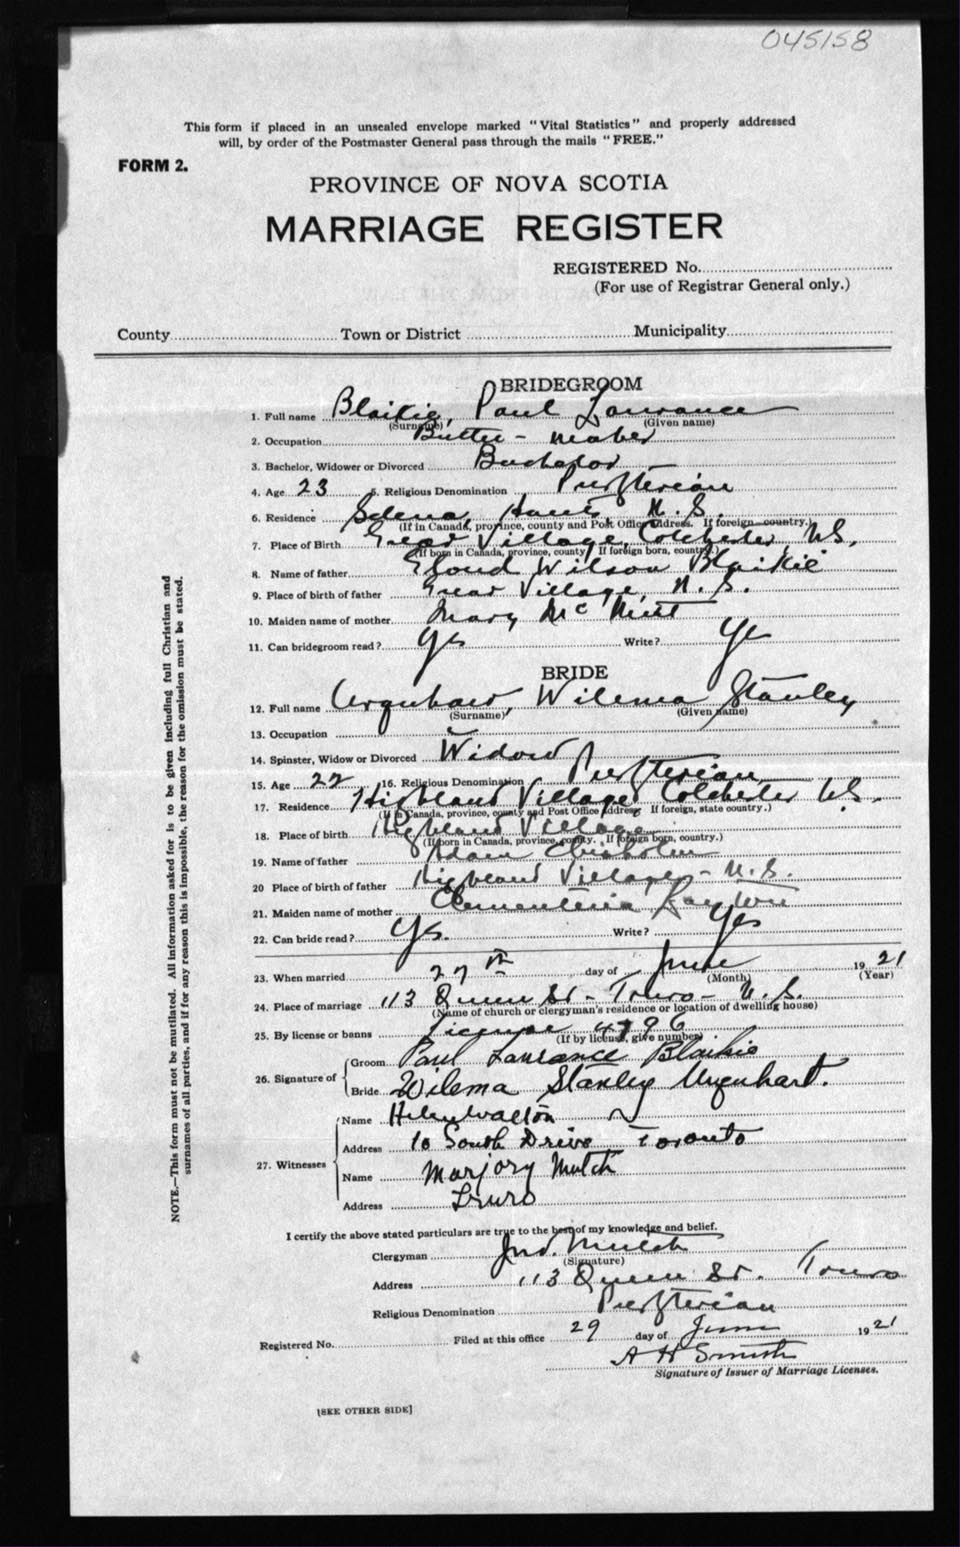 045158
This form if placed in an unsealed envelope marked "Vital Statistics" and properly addressed
will, by order of the Postmaster General pass through the mails "FREE."
FORM 2.
PROVINCE OF NOVA SCOTIA
MARRIAGE REGISTER
REGISTERED No.
(For use of Registrar General only.)
County Town or District Municipality
BRIDEGROOM
1. Full name Blaikie, Paul Laurance
(Surname) (Given name)
2. Occupation Butter-maker
3. Bachelor, Widower or Divorced Bachelor
4. Age 23 5. Religious Denomination Presbyterian
6. Residence Selena, Hants, N.S.
(If in Canada, province, county and Post Office address. If foreign country.)
7. Place of Birth Great Village, Colchester, N.S.
(If born in Canada, province, county. If foreign born, country.)
8. Name of father Wilson Blaikie
9. Place of birth of father Great Village, N.S.
10. Maiden name of mother Mary Mc
11. Can bridegroom read? Yes Write? Yes
BRIDE
12. Full name Urquhart, Wilema Stanley
(Surname) (Given name)
13. Occupation
14. Spinster, Widow or Divorced Widow
15. Age 22 16. Religious Denomination Presbyterian
17. Residence Highland Village Colchester N.S.
(If in Canada, province, county and Post Office address. If foreign, state country.)
18. Place of birth Highland Village
(If born in Canada, province, county. If foreign born, country.)
19. Name of father Adam Chisholm
20 Place of birth of father Highland Village - N.S.
21. Maiden name of mother Clementina Layton
22. Can bride read? Yes. Write? Yes
23. When married 27th day of June 1921
(Month) (Year)
24. Place of marriage 113 Queen St - Truro - N.S.
(Name of church or clergyman's residence or location of dwelling house)
25. By license or banns License 4796
(If by license, give number)
26. Signature of Groom Paul Laurance Blaikie
Bride Wilema Stanley Urquhart.
27. Witnesses Name Helen Walton
Address 10 South Drive Toronto
Name Marjory Mutch
Address Truro
I certify the above stated particulars are true to the best of my knowledge and belief.
Clergyman Jno. Mutch
(Signature)
Address 113 Queen St. Truro
Religious Denomination Presbyterian
Registered No. Filed at this office 29 day of June 1921
A H Smith
Signature of Issuer of Marriage Licenses.
[SEE OTHER SIDE]
NOTE.—This form must not be mutilated. All information asked for is to be given including full Christian and
surnames of all parties, and if for any reason this is impossible, the reason for the omission must be stated.